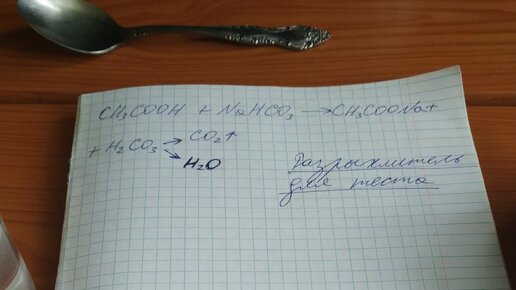 CH₃COOH + NaHCO₃ → CH₃COONa +
+ H₂CO₃ → CO₂↑
↘ H₂O
Разрыхлитель
для теста